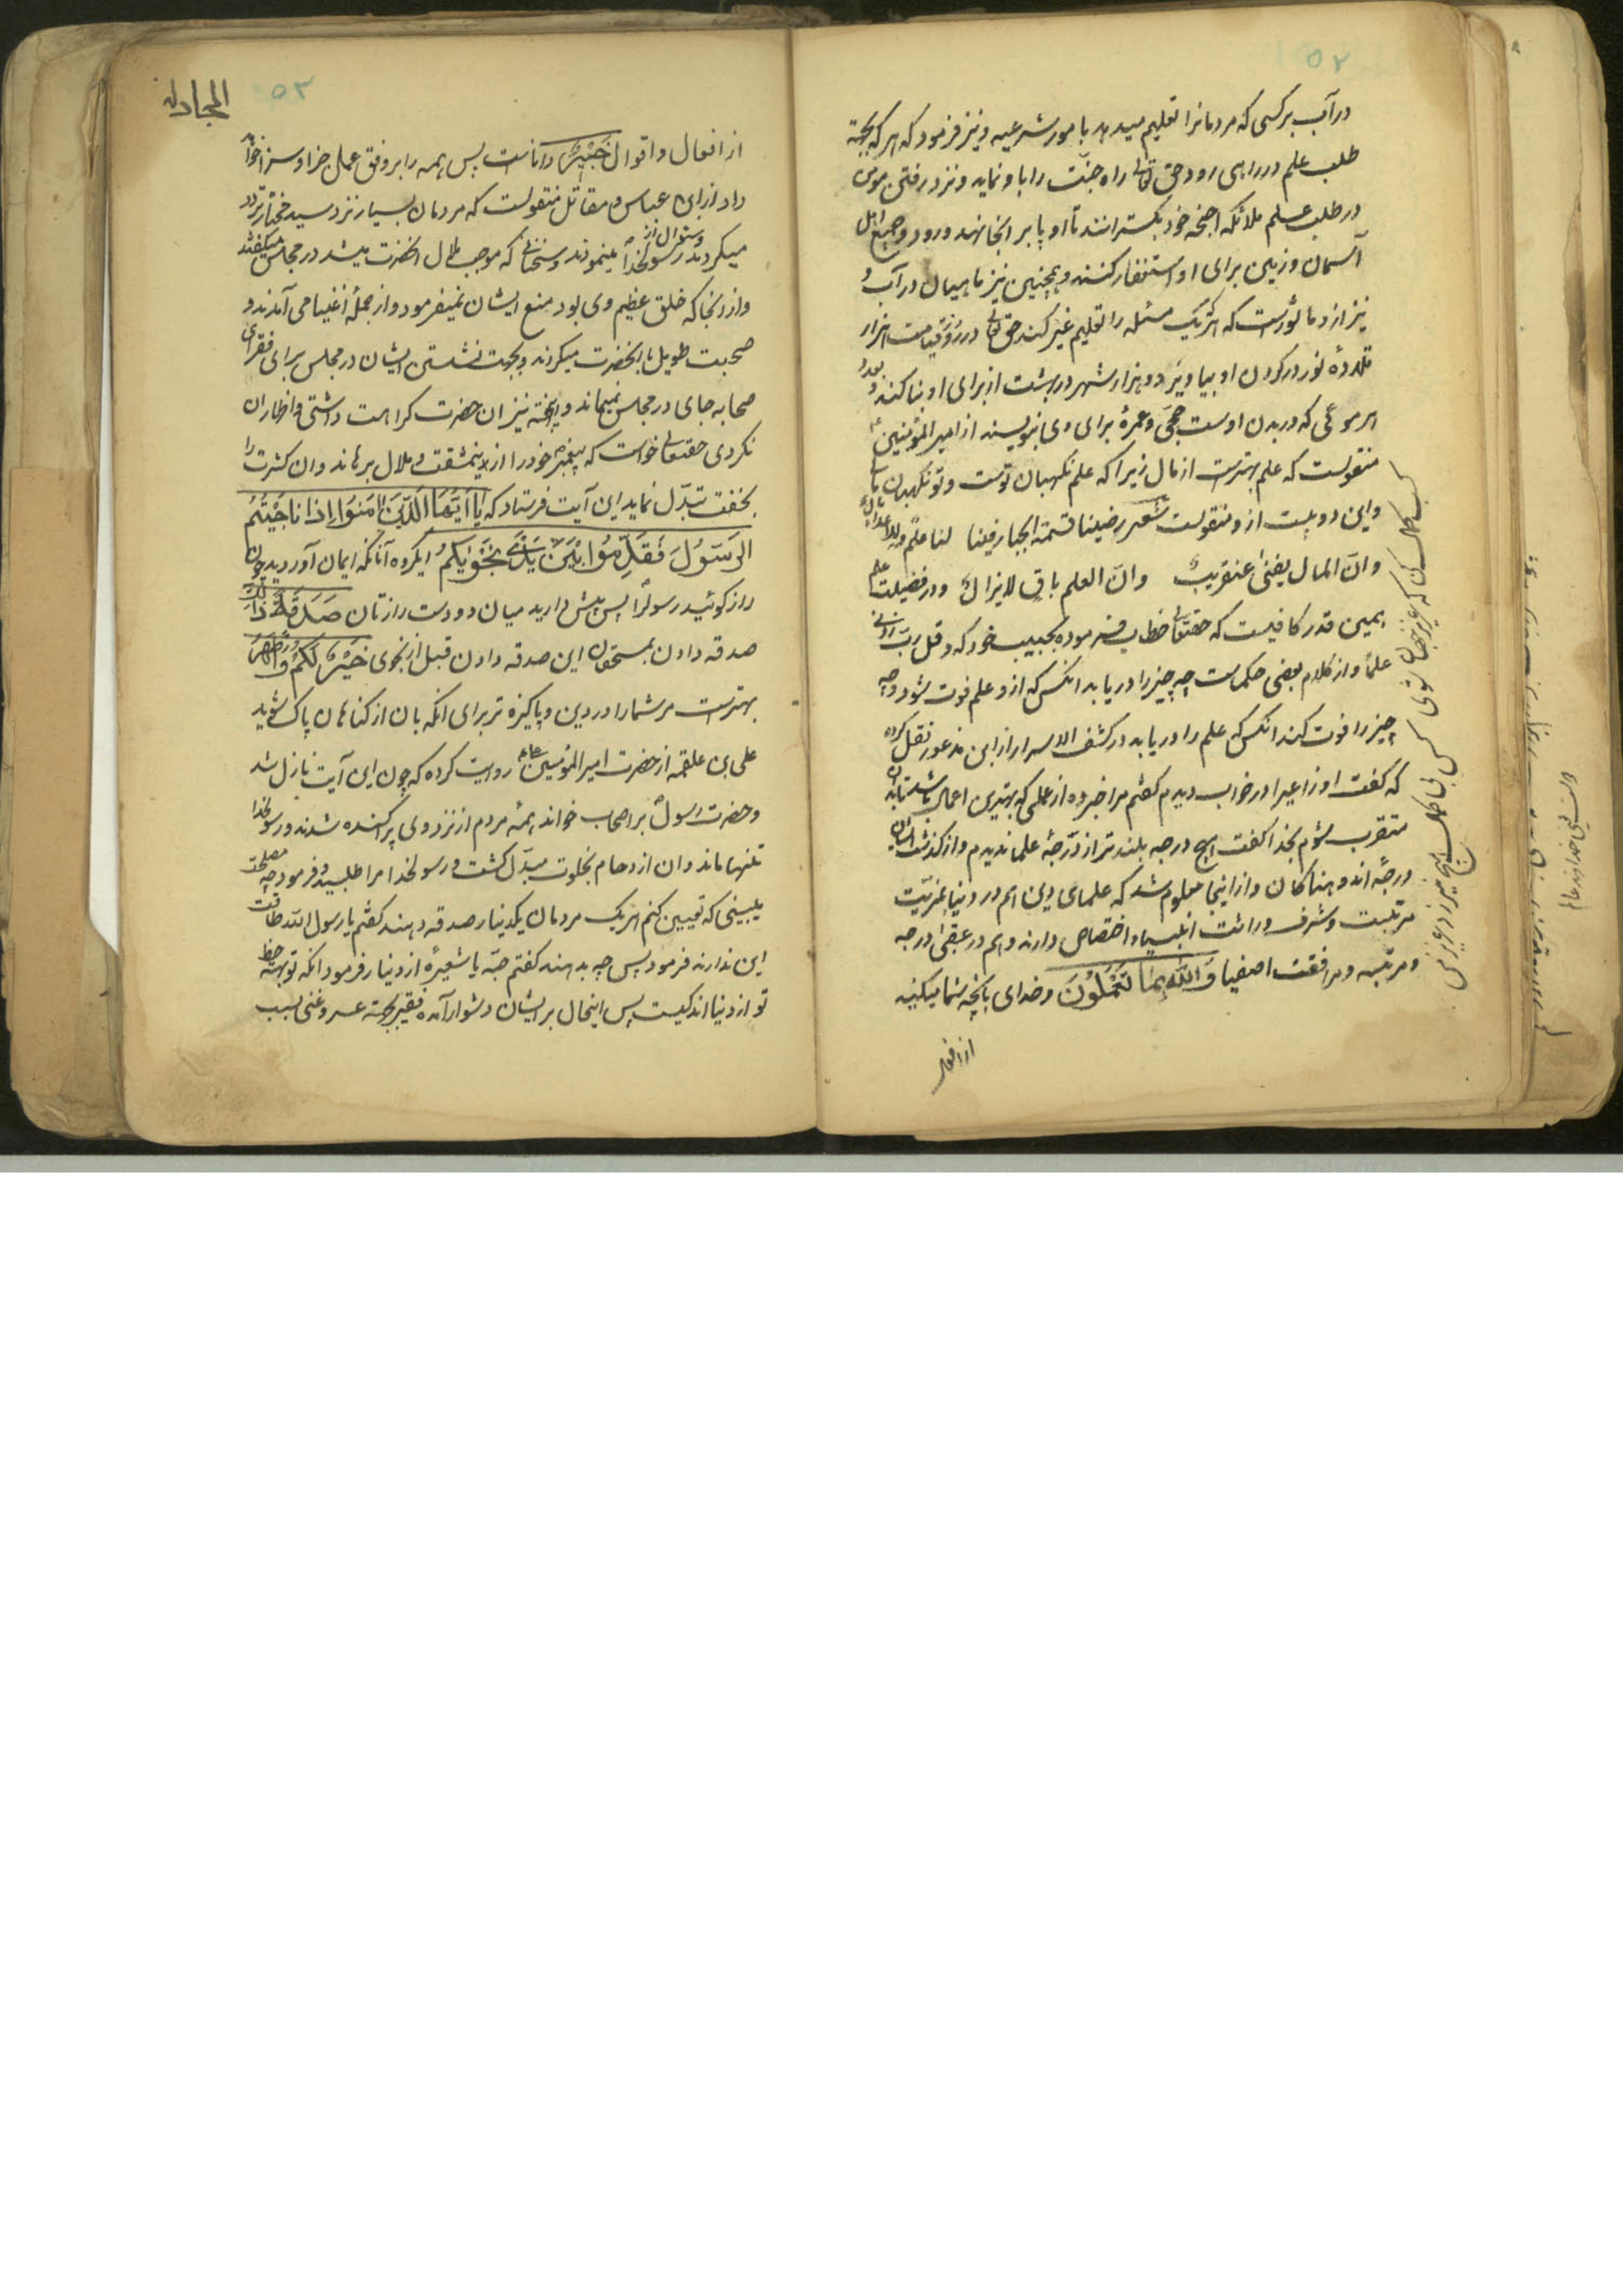 ۵۲
در آب بر کسی که مردمانرا تعلیم میدهد بامور شرعیه و نیز فرمود که هر که بجهة
طلب علم در راهی رود حق تعالی راه جنّت را باو نماید و نزد رفتن مومن
در طلب علم ملائکه اجنحه خود بگسترانند تا او پا بر انجا نهد و رود و جمیع اهل
آسمان و زمین برای او استغفار کنند و همچنین نیز ماهیان در آب و
نیز ازو ماثورست که هر که یک مسئله را تعلیم غیر کند حق تعالی در روز قیامت هزار
قلادهٔ نور در گردن او بیاویزد و هزار شهر در بهشت از برای او بنا کند و بعدد
هر موئی که در بدن اوست حجّی و عمرهٔ برای وی بنویسند از امیر المؤمنین ع
منقولست که علم بهترست از مال زیرا که علم نگهبان توست و تو نگهبان مالی
و این دو بیت ازو منقولست شعر رضینا قسمة الجبار فینا لنا علم و للاعداء مال
و انّ المال یفنی عنقریب و انّ العلم باق لا یزال و در فضیلت علم
همین قدر کافیست که حقتعالی خطاب فرموده بحبیب خود که و قل ربّ زدنی
علمًا و از کلام بعضی حکماست چه چیز را دریابد انکس که ازو علم فوت شود و چه
چیز را فوت کند انکس که علم را دریابد در کشف الاسرار از ابن مذعور نقل کرده
که گفت اوزاعیرا در خواب دیدم گفتم مرا خبر ده از عملی که بهترین اعمال باشد تا بان
متقرب شوم بخدا گفت هیچ درجه بلندتر از درجهٔ علما ندیدم و از گذشت ایشان
درجهٔ اندوهناکان و از اینجا معلوم شد که علمای دین هم در دنیا بمزیّت
مرتبت و شرف وراثت انبیا و اختصاص دارند و هم در عقبی درجه
و مرتبه و مرافقت اصفیا وَاللّهُ بِمَا تَعْمَلُونَ و خدای بانچه شما میکنید
از افعال
کسب کمال کن که عزیز جهان شوی
کس بی کمال هیچ نیرزد عزیز من
۵۳
المجادله
از افعال و اقوال خَبِیرٌ داناست پس همه را بر وفق عمل جزا و سزا خواهد
داد از ابن عباس و مقاتل منقولست که مردمان بسیار نزد سید مختار تردد
میکردند و سئوال از رسولخدا مینمودند و سخنانی که موجب ملال انحضرت میشد در مجلس میگفتند
و از انجا که خلق عظیم وی بود منع ایشان نمیفرمود و از جملهٔ اغنیا می آمدند و
صحبت طویل با انحضرت میکردند و بجهت نشستن ایشان در مجلس برای فقرای
صحابه جای در مجلس نمیماند و اینجهة نیز ان حضرت کراهت داشتی و اظهار ان
نکردی حقتعالی خواست که پیغمبر خود را از اینمشقت و ملال برهاند و ان کثرت را
بخفت تبدّل نماید این آیت فرستاد که یَا اَیُّهَا الَّذِینَ اٰمَنُوا اِذَا نَاجَیْتُمُ
الرَّسُولَ فَقَدِّمُوا بَیْنَ یَدَیْ نَجْوٰیکُمْ ایگروه آنانکه ایمان آوردید چون
راز گوئید رسولرا پس پیش دارید میان دو دست رازتان صَدَقَةً ذٰلِکَ
صدقه دادن بمستحقون این صدقه دادن قبل از نجوی خَیْرٌ لَکُمْ وَ اَطْهَرُ
بهترست مر شما را در دین و پاکیزه تر برای انکه بان از گناهان پاک شوید
علی بن علقمه از حضرت امیر المؤمنین روایت کرده که چون این آیت نازل شد
و حضرت رسول بر اصحاب خواند همهٔ مردم از نزد وی پراکنده شدند و رسولخدا
تنها ماند و ان ازدحام بخلوت مبدّل گشت و رسولخدا مرا طلبید و فرمود چه مصلحت
میبینی که تعیین کنم هر یک مردمان یکدینار صدقه دهند گفتم یا رسول الله طاقت
این ندارند فرمود پس چه بدهند گفتم حبّه یا شعیرهٔ از دینار فرمود انکه تو بهره حظ
تو از دنیا اندکیست پس اینحال بر ایشان دشوار آمد فقیر بجهته عسر و غنی بسبب